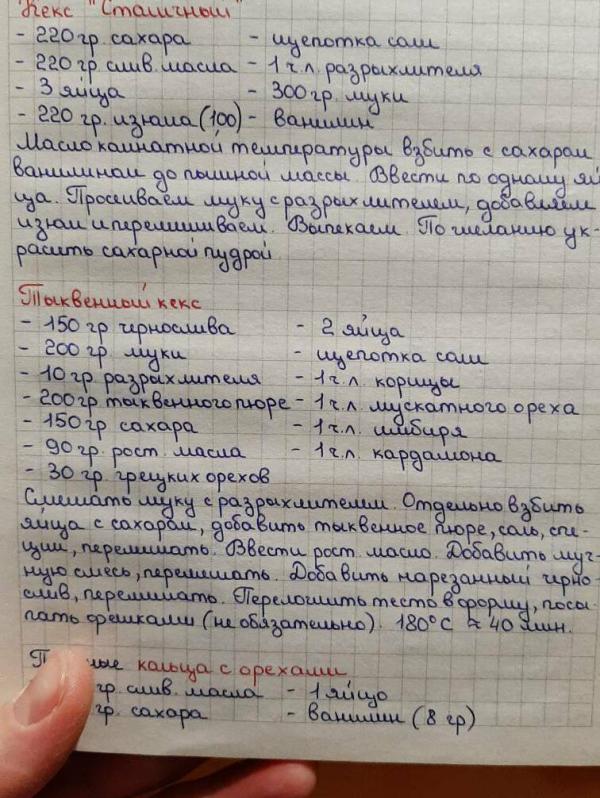 Кекс "Столичный"
- 220 гр. сахара - щепотка соли
- 220 гр. слив. масла - 1 ч.л. разрыхлителя
- 3 яйца - 300 гр. муки
- 220 гр. изюма (100) - ванилин
Масло комнатной температуры взбить с сахаром,
ванилином до пышной массы. Ввести по одному яй-
ца. Просеиваем муку с разрыхлителем, добавляем
изюм и перемешиваем. Выпекаем. По желанию ук-
расить сахарной пудрой.
Тыквенный кекс
- 150 гр чернослива - 2 яйца
- 200 гр. муки - щепотка соли
- 10 гр. разрыхлителя - 1 ч.л. корицы
- 200 гр тыквенного пюре - 1 ч.л. мускатного ореха
- 150 гр. сахара - 1 ч.л. имбиря
- 90 гр. раст. масла - 1 ч.л. кардамона
- 30 гр. грецких орехов
Смешать муку с разрыхлителем. Отдельно взбить
яйца с сахаром, добавить тыквенное пюре, соль, спе-
ции, перемешать. Ввести раст. масло. Добавить муч-
ную смесь, перемешать. Добавить нарезанный черно-
слив, перемешать. Переложить тесто в форму, посы-
пать орешками (не обязательно). 180°С ≈ 40 мин.
кольца с орехами
гр. слив. масла - 1 яйцо
гр. сахара - ванилин (8 гр)